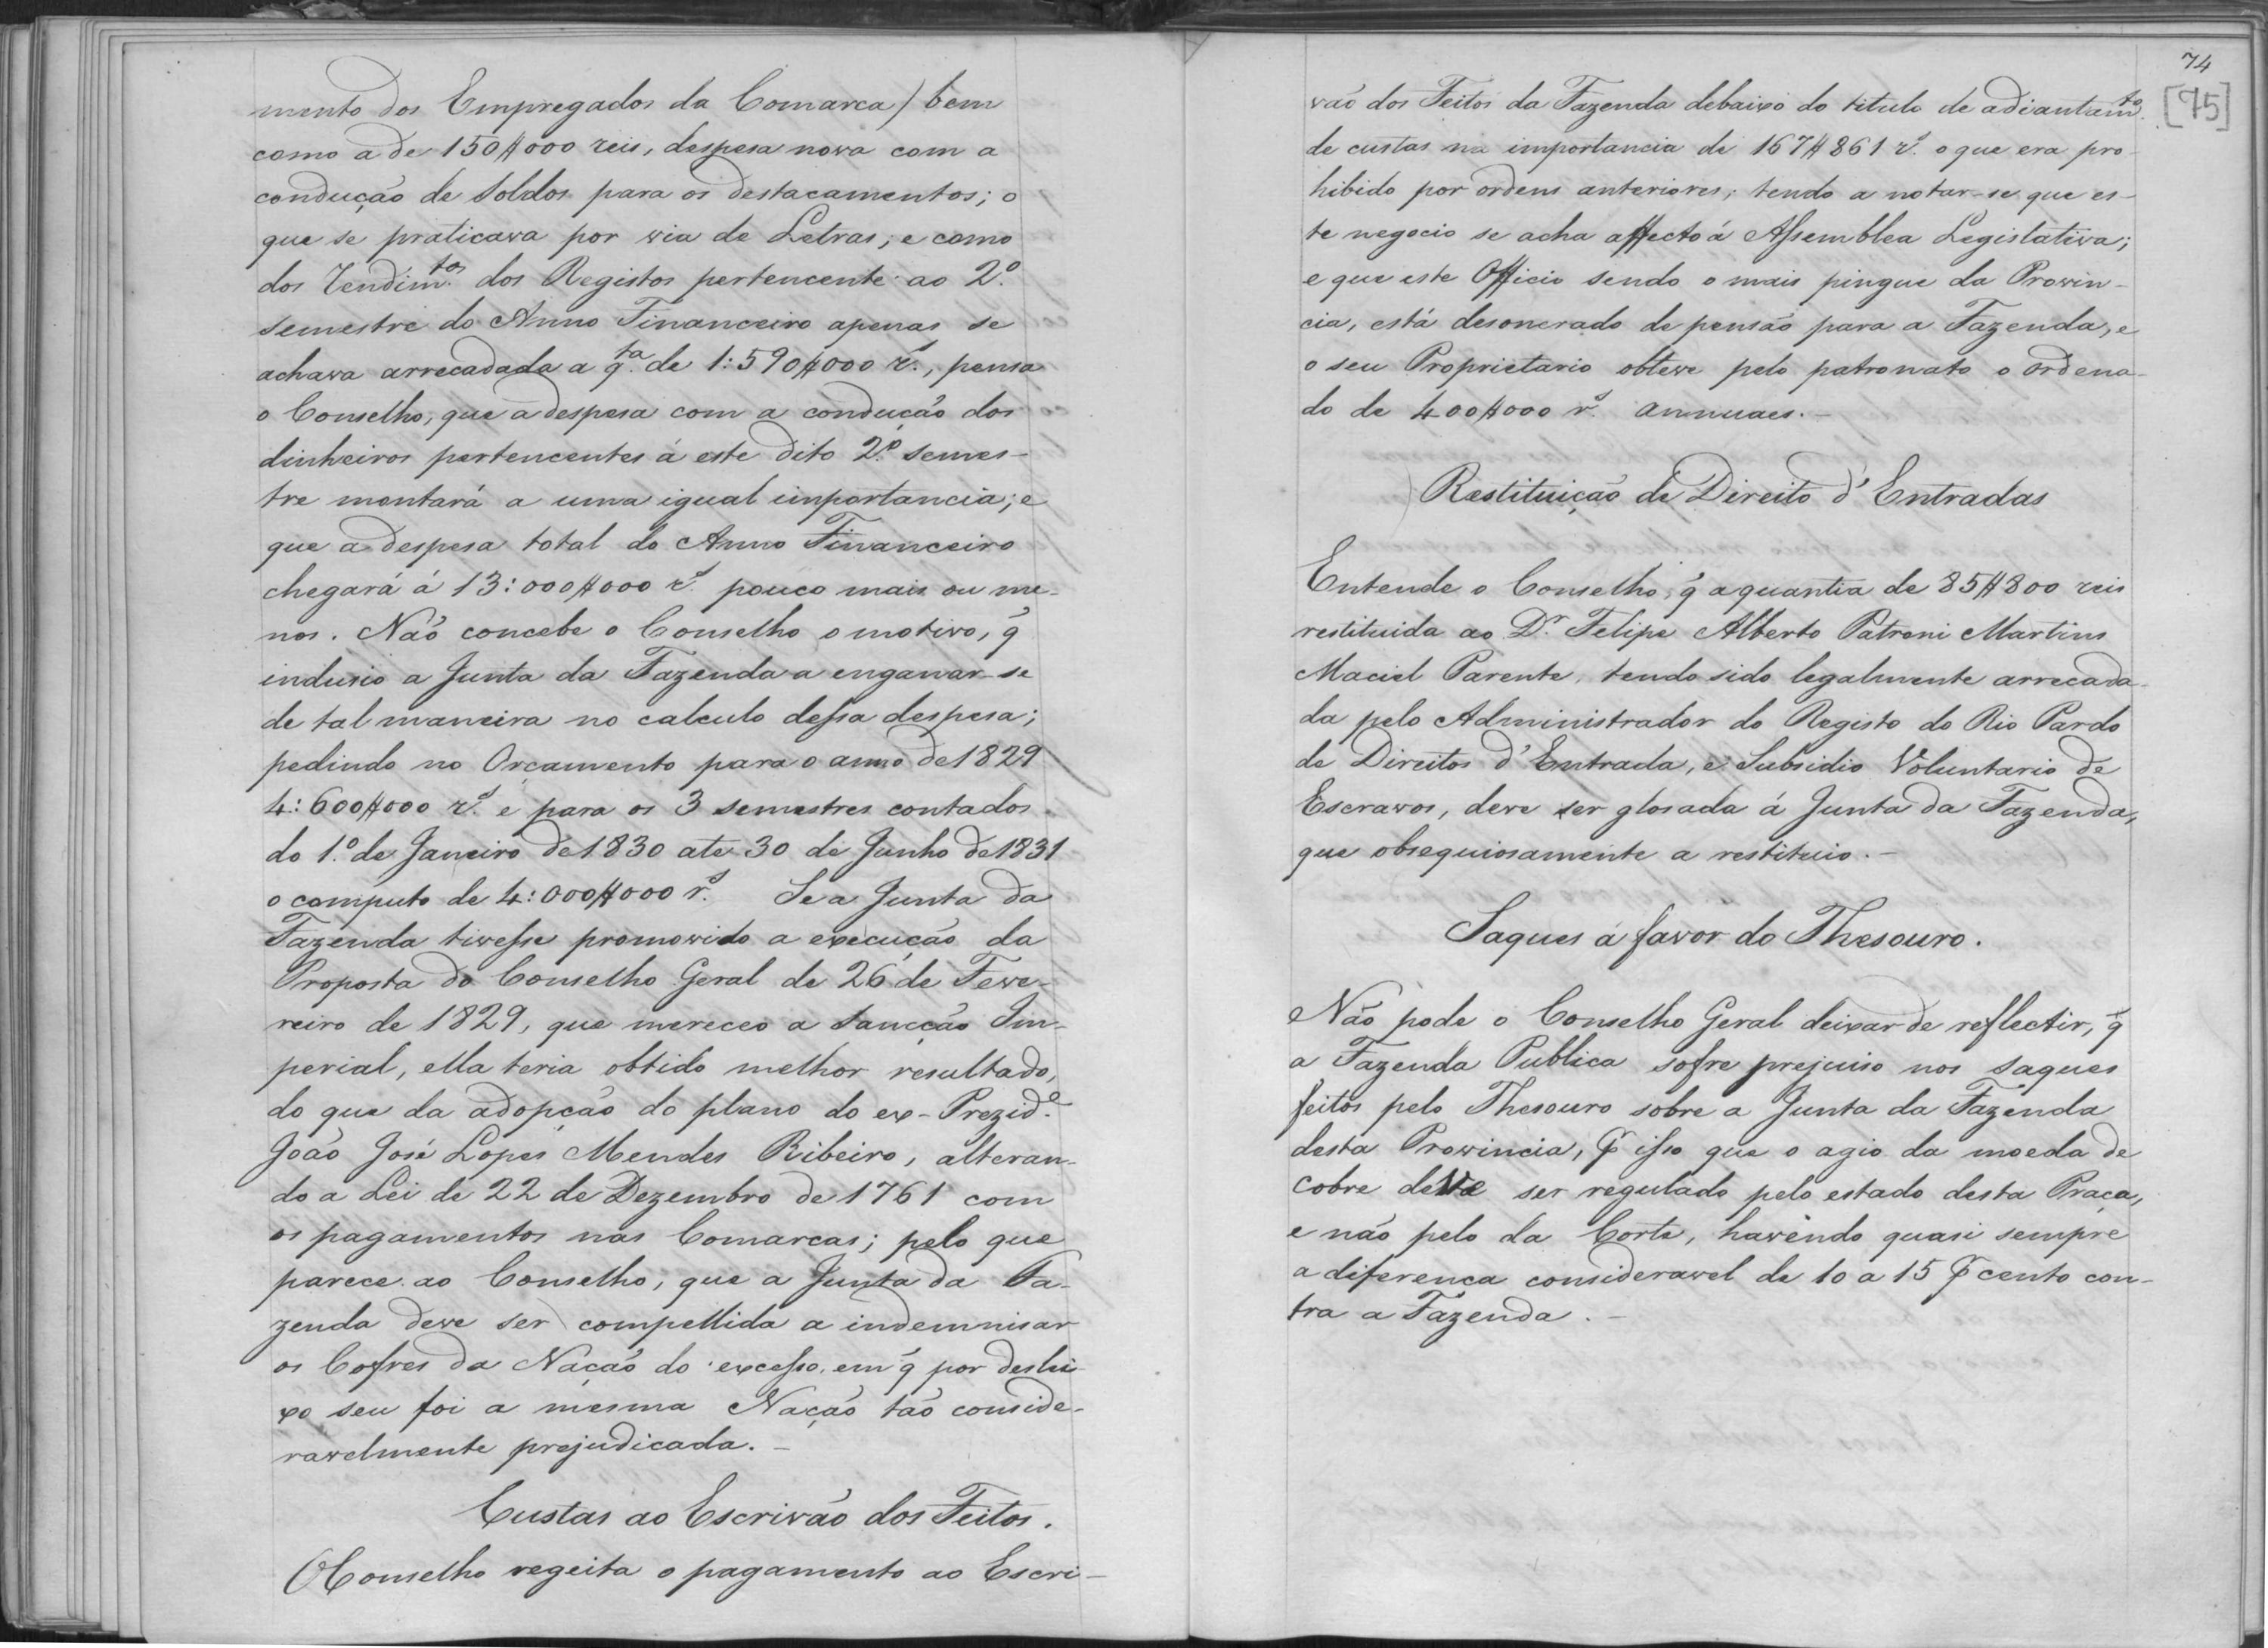 mento dos Empregados da Comarca) bem
como a de 150$000 reis, despesa nova com a
condução de soldos para os destacamentos; o
que se praticava por via de Letras; e como
dos rendim.tos dos Registos pertencente ao 2.º
semestre do Anno Financeiro apenas se
achava arrecadada a q.ta de 1:590$000 r.s, pensa
o Conselho, que a despesa com a condução dos
dinheiros pertencentes á este dito 2.º semes-
tre montará a uma igual importancia; e
que a despesa total do Anno Financeiro
chegará á 13:000$000 r.s pouco mais ou me-
nos. Não concebe o Conselho o motivo, q̃
indusio a Junta da Fazenda a enganar-se
de tal maneira no calculo dessa despesa;
pedindo no Orçamento para o anno de 1829
4:600$000 r.s e para os 3 semestres contados
do 1.º de Janeiro de 1830 ate 30 de Junho de 1831
o computo de 4:000$000 r.s Se a Junta da
Fazenda tivesse promovido a execução da
Proposta do Conselho Geral de 26 de Feve-
reiro de 1829, que mereceo a Sancção Im-
perial, ella teria obtido melhor resultado,
do que da adopção do plano do ex-Prezid.e
João José Lopes Mendes Ribeiro, alteran-
do a Lei de 22 de Dezembro de 1761 com
os pagamentos nas Comarcas; pelo que
parece ao Conselho, que a Junta da Fa-
zenda deve ser compellida a indemnisar
os Cofres da Nação do excesso, em q̃ por deslei-
xo seu foi a mesma Nação tão conside-
ravelmente prejudicada.-
Custas ao Escrivão dos Feitos.
O Conselho regeita o pagamento ao Escri-
74
[75]
vão dos Feitos da Fazenda debaixo do titulo de adiantam.to
de custas na importancia de 167$861 r.s o que era pro-
hibido por ordens anteriores; tendo a notar-se que es-
te negocio se acha affecto á Assemblea Legislativa;
e que este Officio sendo o mais pingue da Provin-
cia, está desonerado de pensão para a Fazenda, e
o seu Proprietario obteve pelo patronato o ordena-
do de 400$000 r.s annuaes.-
Restituição de Direito d'Entradas
Entende o Conselho, q̃ a quantia de 85$800 reis
restituida ao D.r Felipe Alberto Patroni Martins
Maciel Parente, tendo sido legalmente arrecada-
da pelo Administrador do Registo do Rio Pardo
de Direitos d'Entrada, e Subsidio Voluntario de
Escravos, deve ser glosada á Junta da Fazenda,
que obsequiosamente a restituio.-
Saques á favor do Thesouro.
Não pode o Conselho Geral deixar de reflectir, q̃
a Fazenda Publica sofre prejuiso nos saques
feitos pelo Thesouro sobre a Junta da Fazenda
desta Provincia, p̃ isso que o agio da moeda de
cobre deve ser regulado pelo estado desta Praça,
e não pelo da Corte, havendo quasi sempre
a diferença consideravel de 10 a 15 p̃ cento con-
tra a Fazenda.-